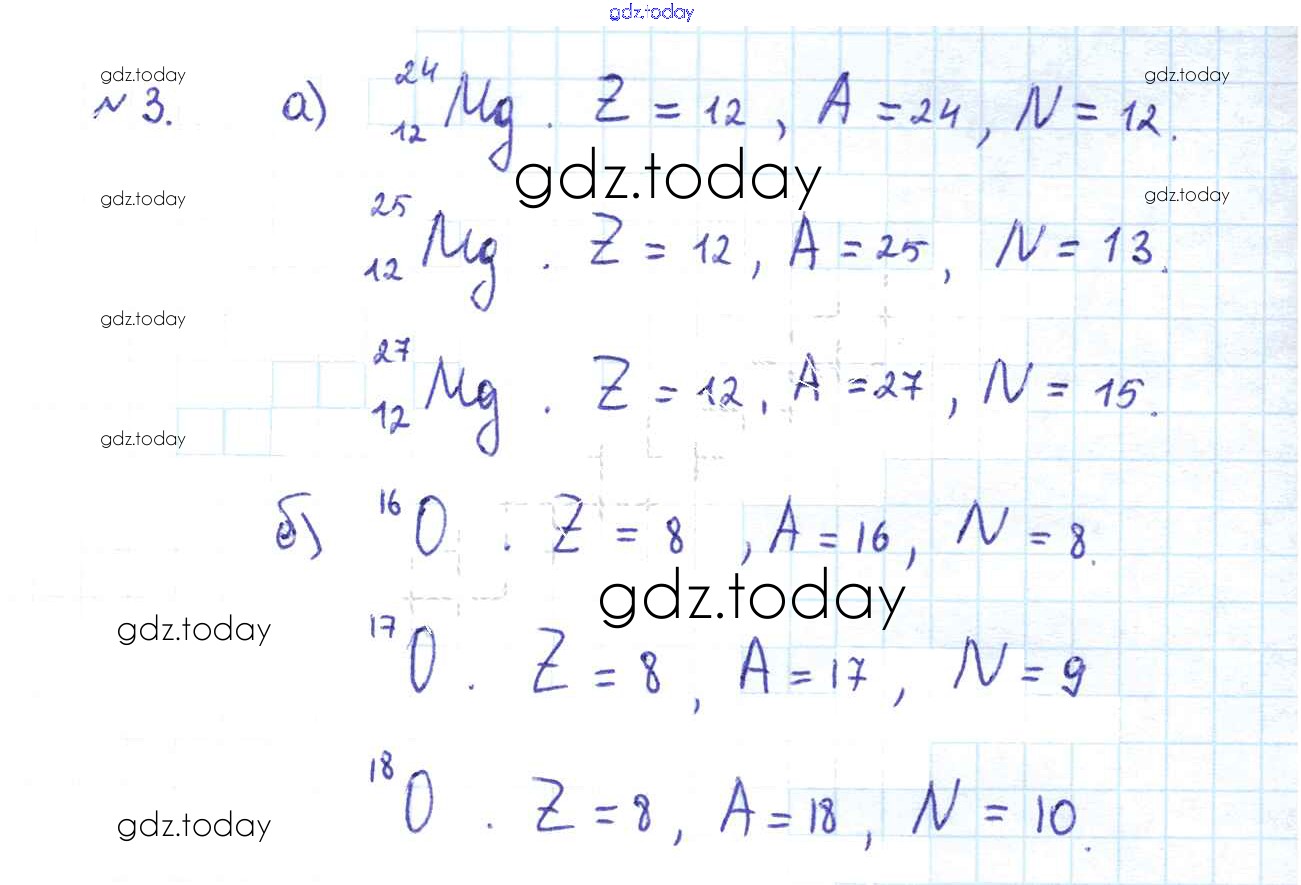 gdz.today
gdz.today
gdz.today
№ 3. а) ²⁴₁₂Mg . Z = 12 , A = 24 , N = 12 .
gdz.today
gdz.today
gdz.today
²⁵₁₂Mg . Z = 12 , A = 25 , N = 13 .
gdz.today
²⁷₁₂Mg . Z = 12 , A = 27 , N = 15 .
gdz.today
б) ¹⁶O . Z = 8 , A = 16 , N = 8 .
gdz.today
gdz.today
¹⁷O . Z = 8 , A = 17 , N = 9
¹⁸O . Z = 8 , A = 18 , N = 10 .
gdz.today